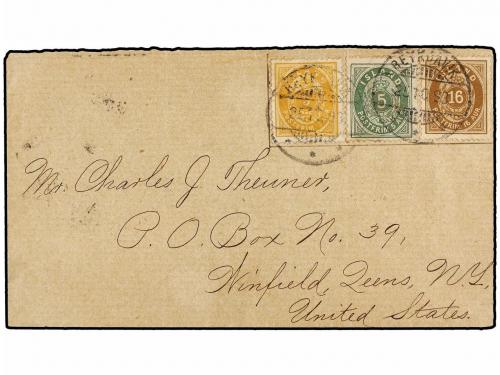 ISLAND
5
16
Mr. Charles J. Theuner,
P. O. Box No. 39,
Winfield, Qeens, N.Y.
United States.